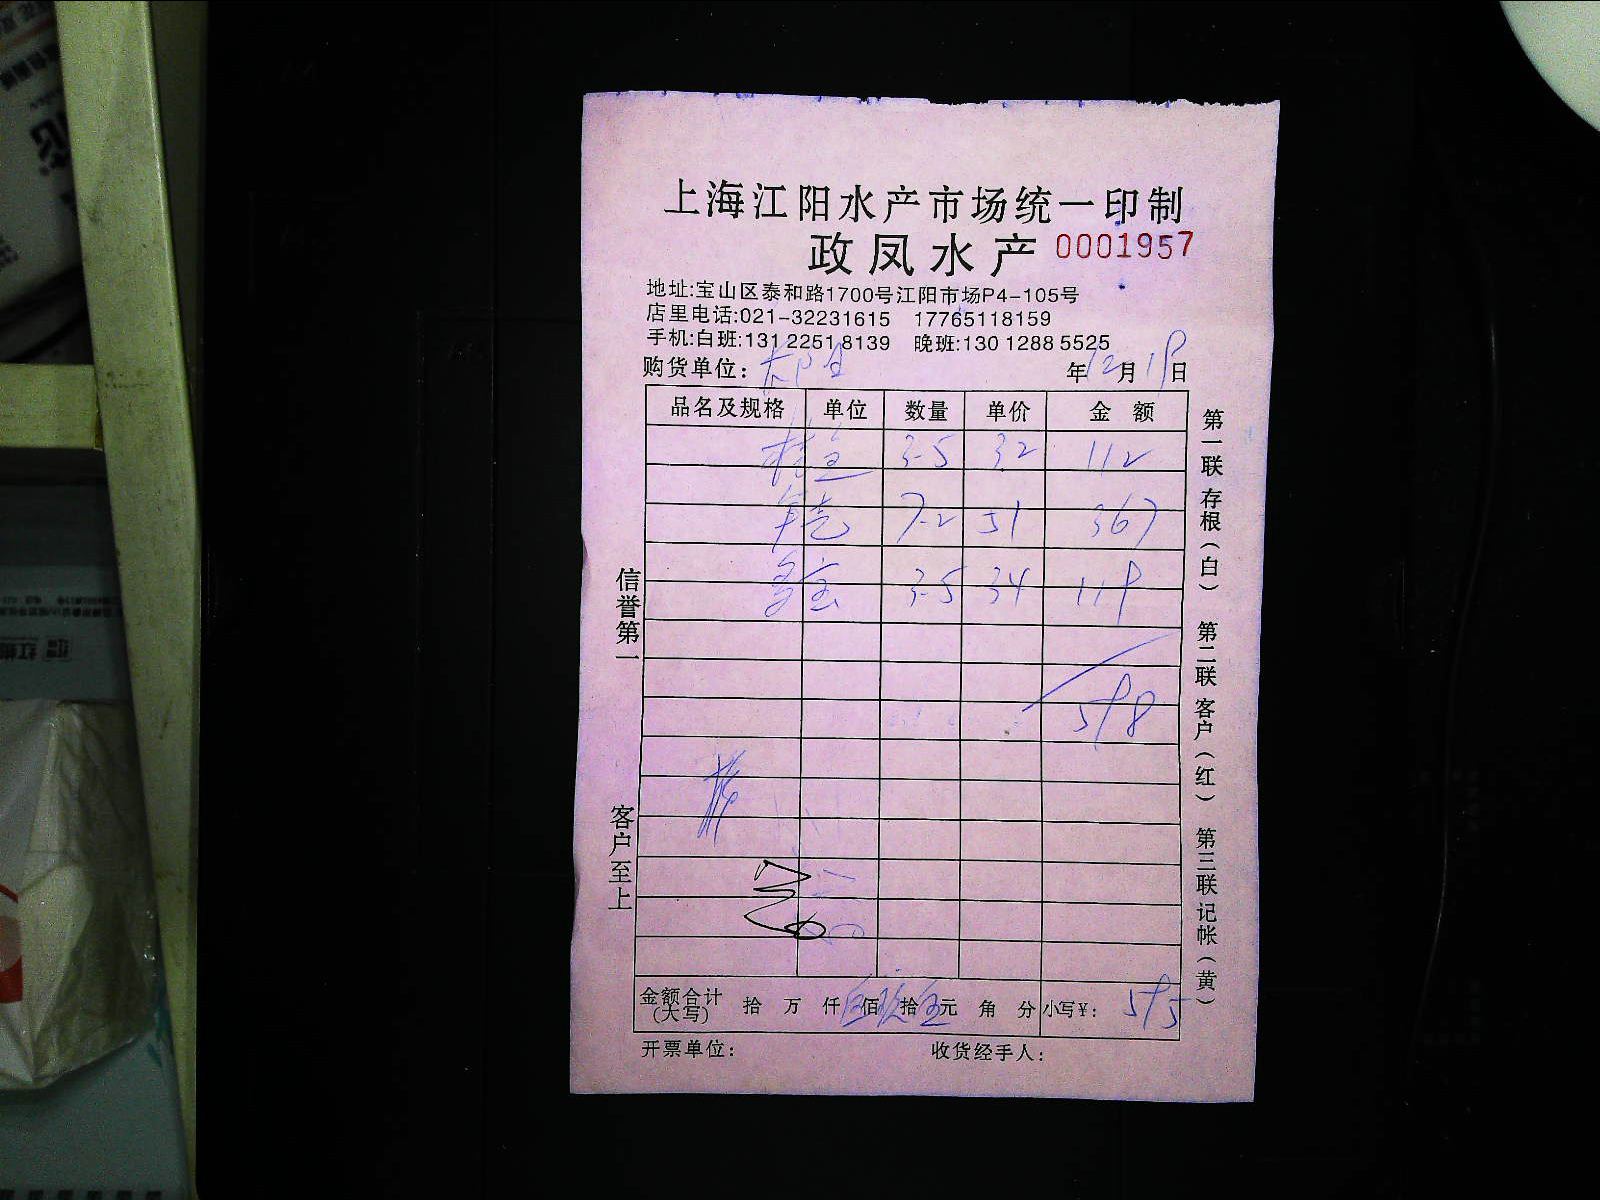 上海江阳水产市场统一印制
政凤水产 0001957
地址:宝山区泰和路1700号江阳市场P4-105号
店里电话:021-32231615 17765118159
手机:白班:131 2251 8139 晚班:130 1288 5525
购货单位: 年12月19日
品名及规格 单位 数量 单价 金额
3-5 32 112
7-2 51 367
3-5 34 119
598
金额合计(大写) 拾 万 仟伍佰玖拾伍元 角 分 小写¥: 595
开票单位: 收货经手人:
信誉第一
客户至上
第一联存根(白) 第二联客户(红) 第三联记帐(黄)